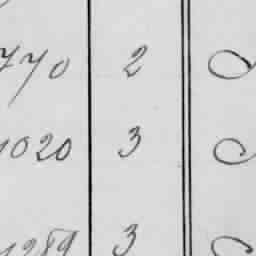 770 2
1020 3
1289 3